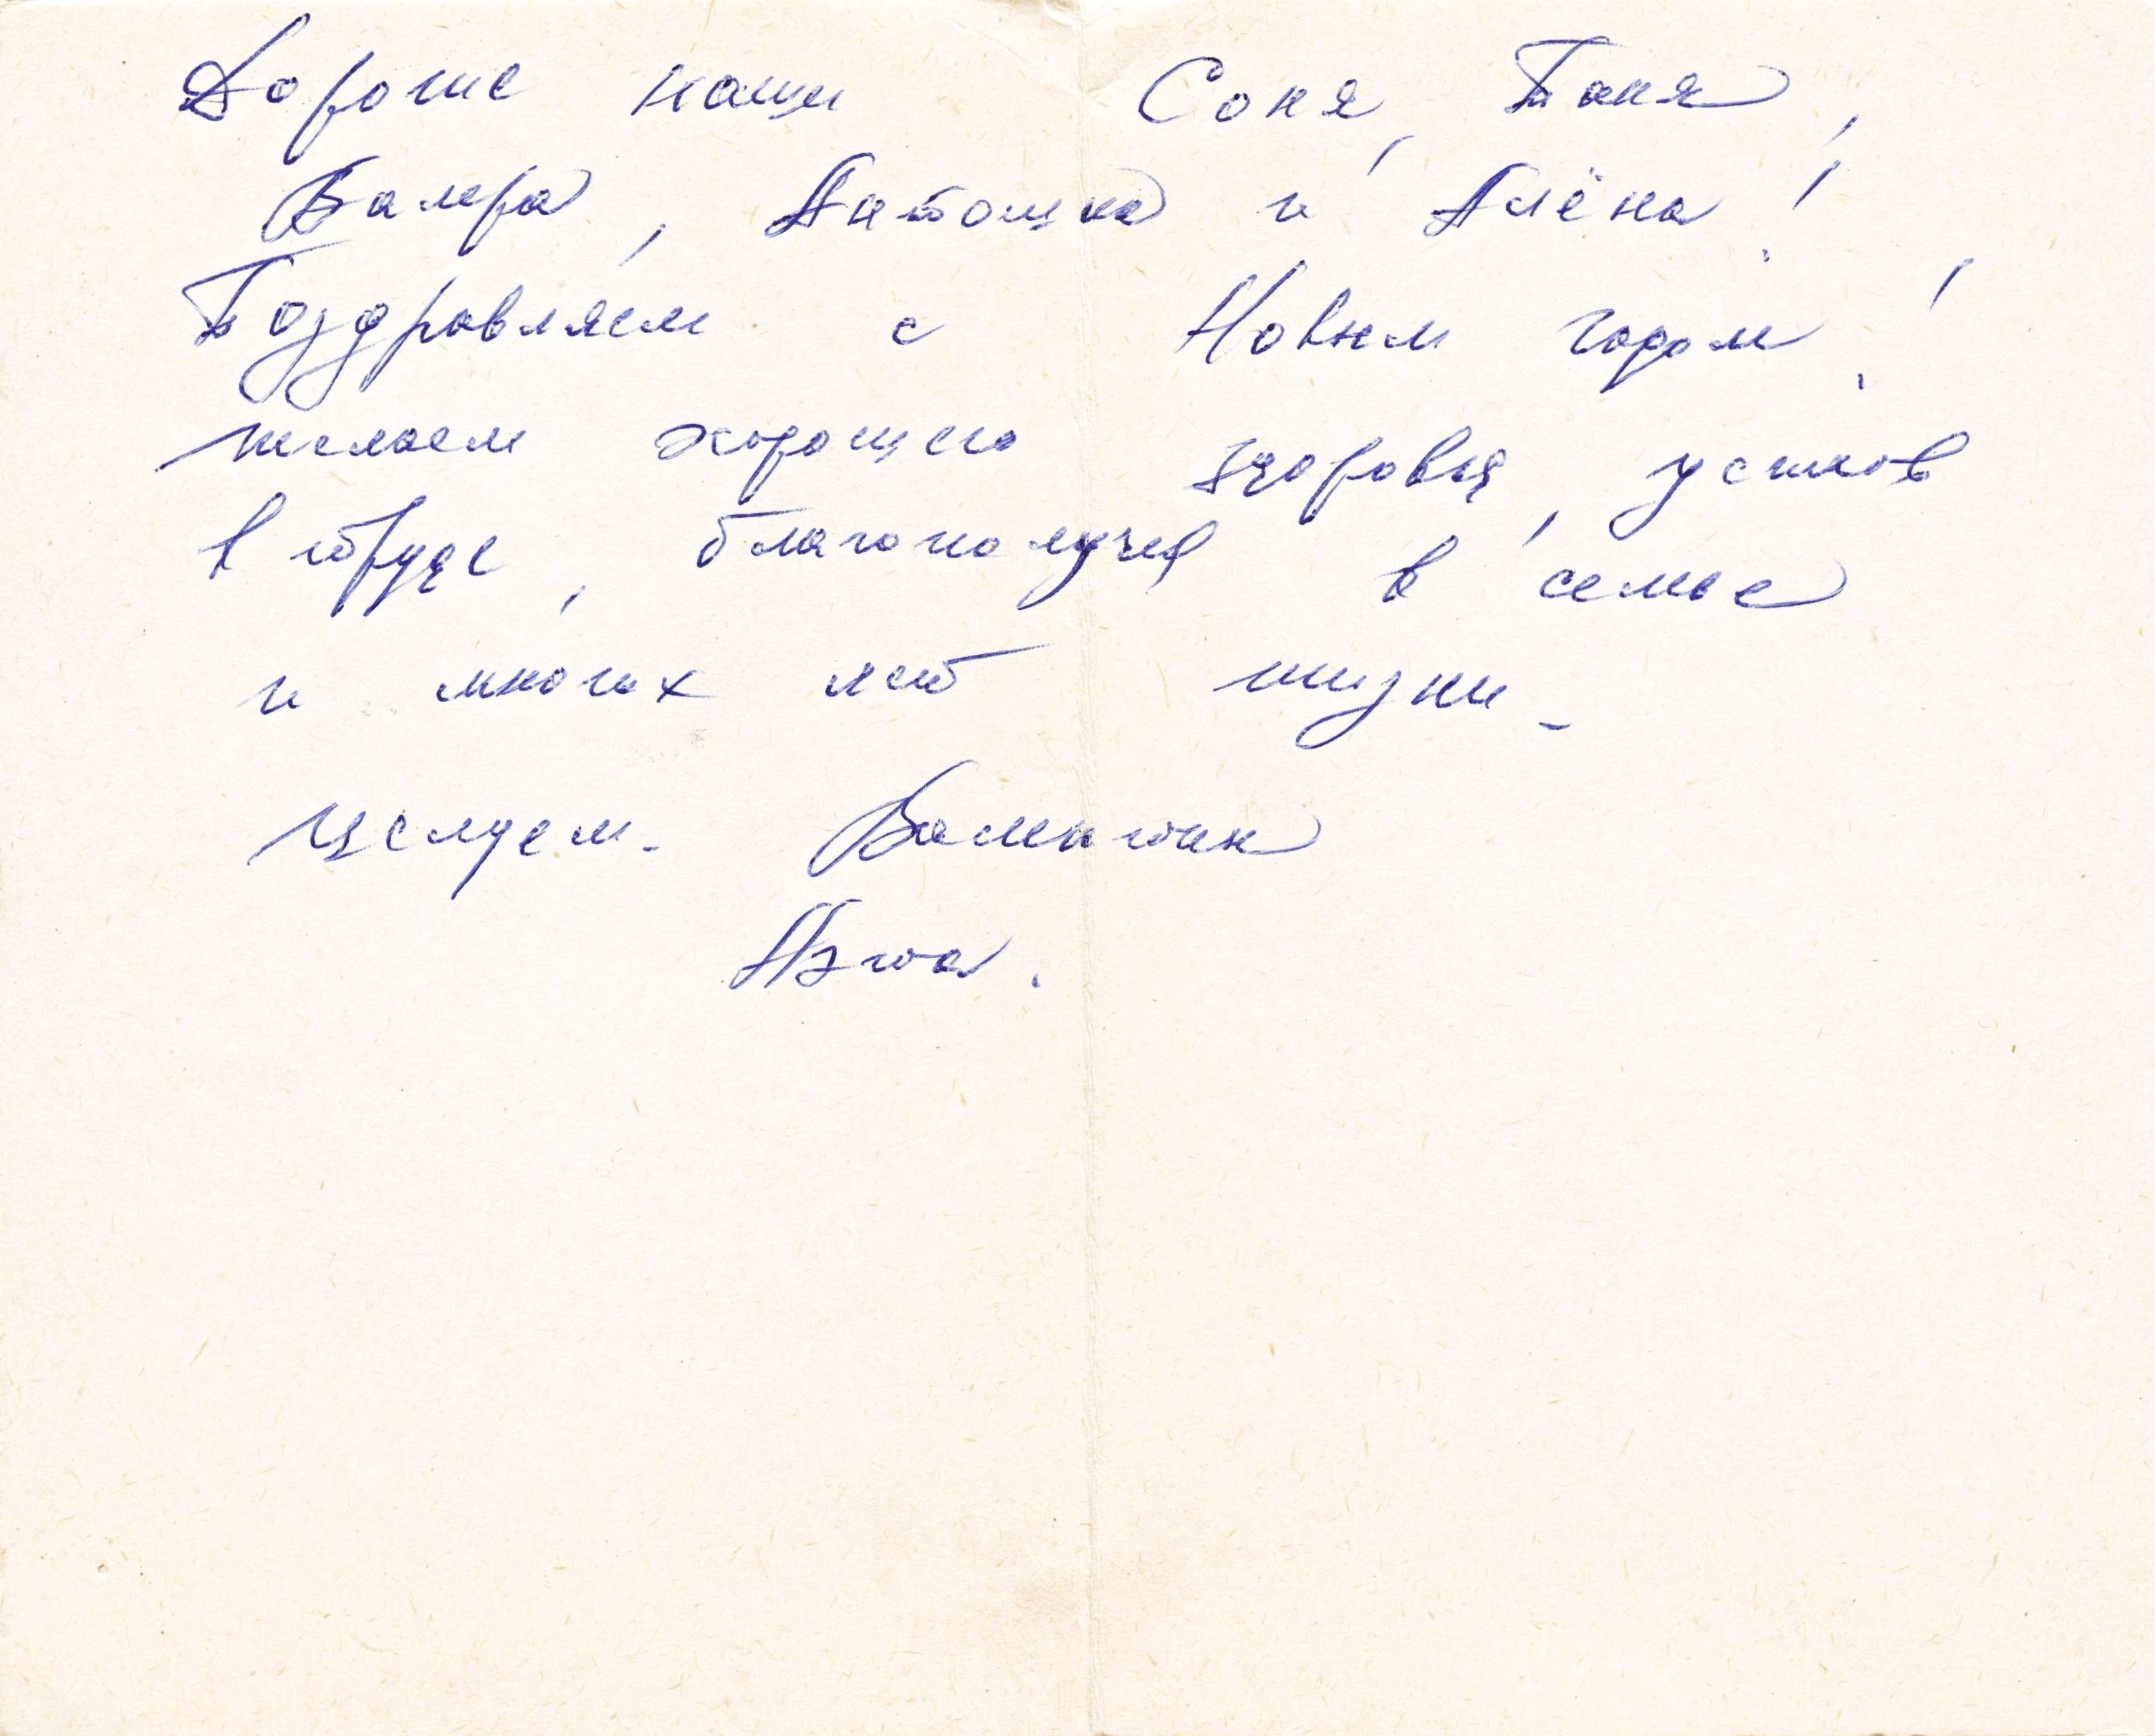 Дорогие наши Соня, Таня,
Валера, Антошка и Алёна!
Поздравляем с Новым годом!
желаем хорошего здоровья, успехов
в труде, благополучия в семье
и многих лет жизни.
Целуем. Валентин